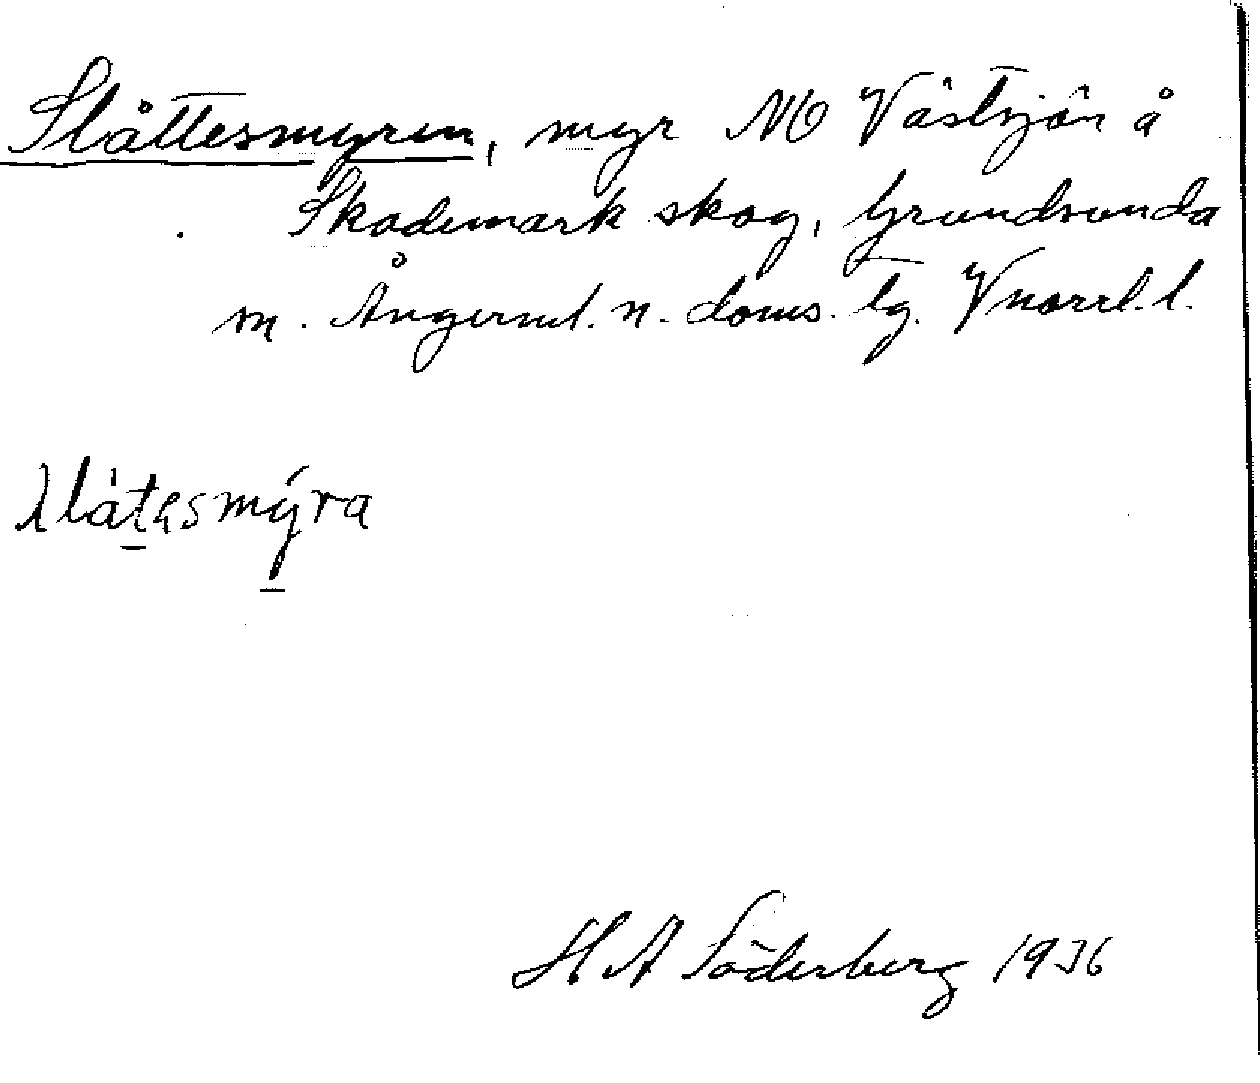 Slåttesmyren, myr NO Västsjön å
Skademark skog, Grundsunda
sn. Ångerml. n. doms. lg. Vnorrl. l.
slåtesmyra
H A Söderberg 1936